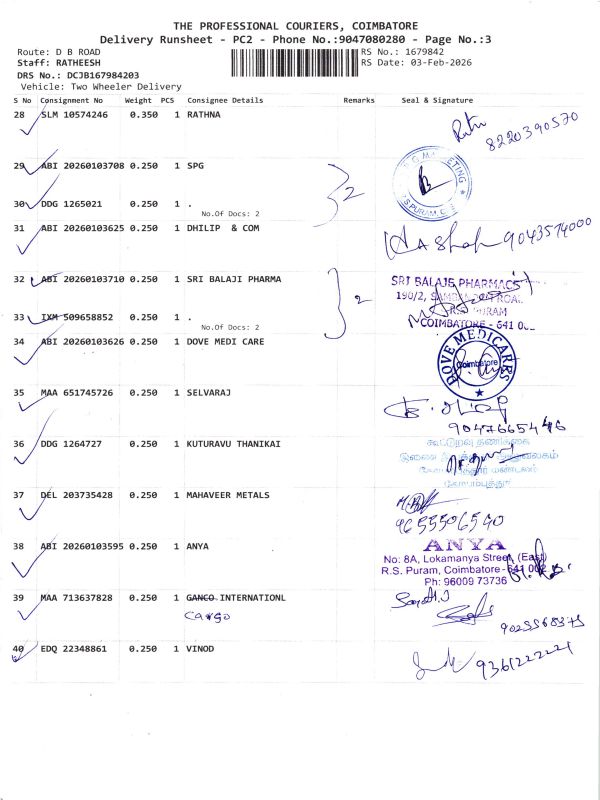 THE PROFESSIONAL COURIERS, COIMBATORE
Delivery Runsheet - PC2 - Phone No.:9047080280 - Page No.:3
Route: D B ROAD
RS No.: 1679842
Staff: RATHEESH
RS Date: 03-Feb-2026
DRS No.: DCJB167984203
Vehicle: Two Wheeler Delivery
S No Consignment No Weight PCS Consignee Details Remarks Seal & Signature
28 SLM 10574246 0.350 1 RATHNA
8220390570
29 ABI 20260103708 0.250 1 SPG
2
30 DDG 1265021 0.250 1 .
No.Of Docs: 2
31 ABI 20260103625 0.250 1 DHILIP & COM
9043574000
32 ABI 20260103710 0.250 1 SRI BALAJI PHARMA
SRI BALAJI PHARMACY
190/2,
2
33 IXM 509658852 0.250 1 .
No.Of Docs: 2
COIMBATORE - 641
34 ABI 20260103626 0.250 1 DOVE MEDI CARE
DOVE MEDICARRS
Coimbatore
35 MAA 651745726 0.250 1 SELVARAJ
36 DDG 1264727 0.250 1 KUTURAVU THANIKAI
கூட்டுறவு தணிக்கை
37 DEL 203735428 0.250 1 MAHAVEER METALS
9655506540
38 ABI 20260103595 0.250 1 ANYA
ANYA
No: 8A, Lokamanya Street (East)
R.S. Puram, Coimbatore - 641 002
Ph: 96009 73736
39 MAA 713637828 0.250 1 GANCO INTERNATIONL
cargo
40 EDQ 22348861 0.250 1 VINOD
9361222221